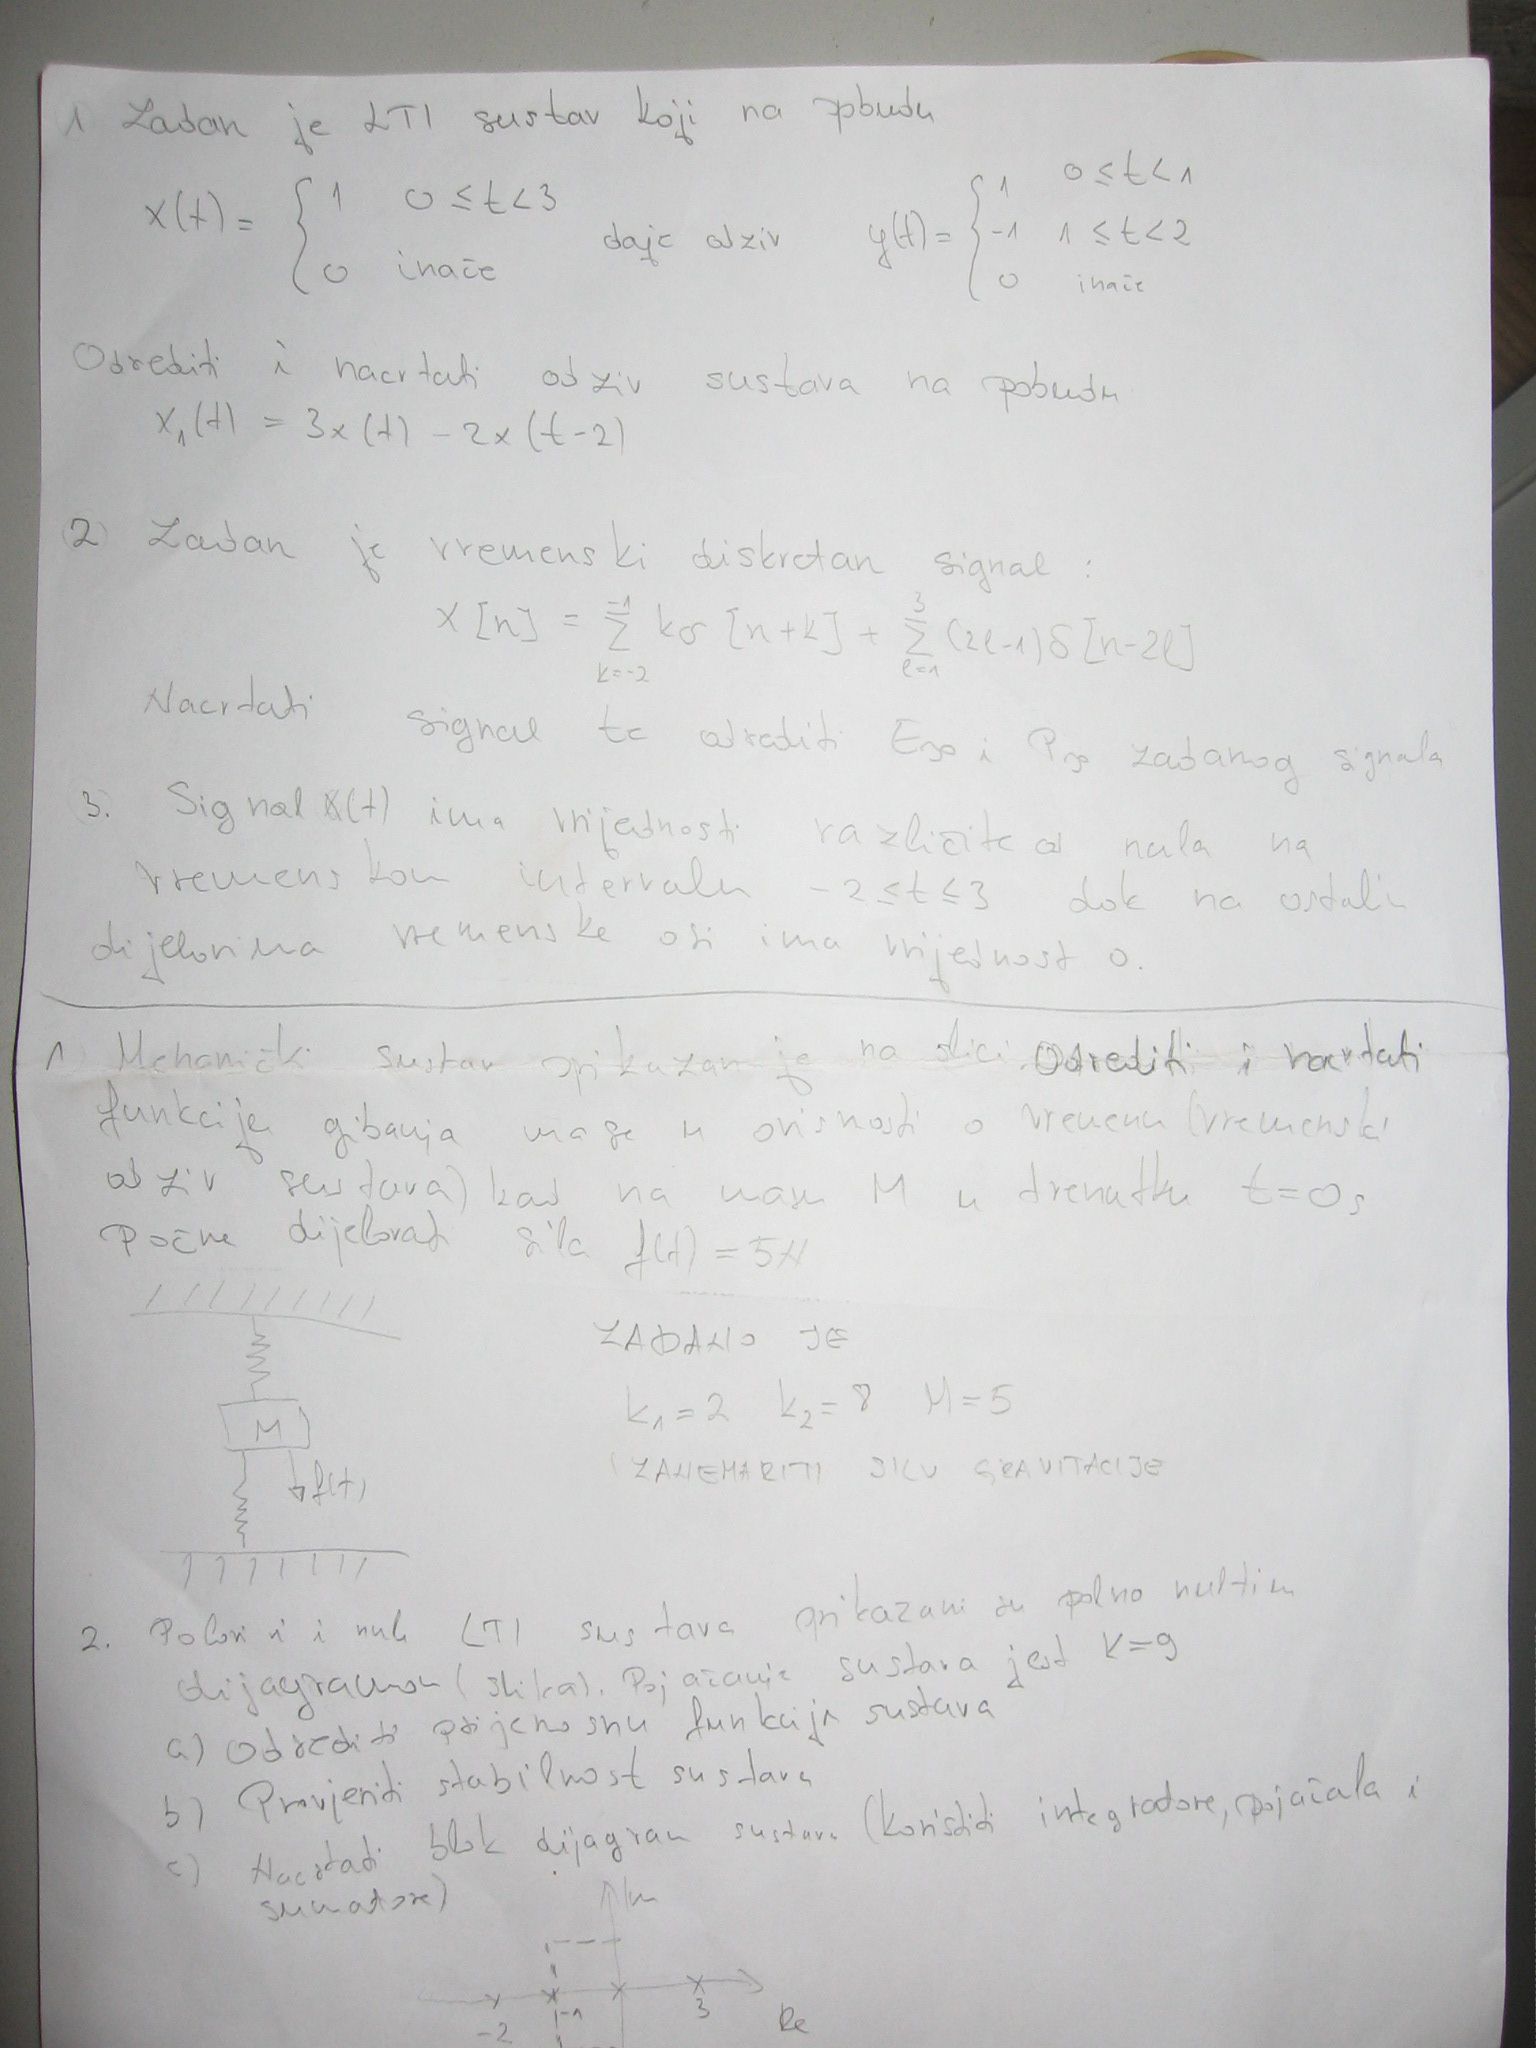 1 Zadan je LTI sustav koji na pbudu
x(t) = { 1 0 ≤ t < 3
0 inače
daje odziv y(t) = { 1 0 ≤ t < 1
-1 1 ≤ t < 2
0 inače
Odrediti i nacrtati odziv sustava na pobudu
x₁(t) = 3x(t) - 2x(t-2)
2) Zadan je vremenski diskretan signal :
x[n] = Σ_{k=-2}^{-1} kδ[n+k] + Σ_{l=1}^{3} (2l-1)δ[n-2l]
Nacrtati signal te odrediti E∞ i P∞ zadanog signala
3. Signal x(t) ima vrijednosti različite od nula na
vremenskom intervalu -2 ≤ t ≤ 3 dok na ostalim
dijelovima vremenske osi ima vrijednost 0.
1) Mehanički sustav prikazan je na slici. Odrediti i nacrtati
funkciju gibanja mase u ovisnosti o vremenu (vremenski
odziv sustava) kad na masu M u trenutku t=0s
počne dijelovati sila f(t) = 5N
ZADANO JE
k₁=2 k₂=8 M=5
(ZANEMARITI SILU GRAVITACIJE
M
f(t)
2. Polovi i nule LTI sustava prikazani su polno nultim
dijagramom (slika). Pojačanje sustava jest K=9
a) Odrediti prijenosnu funkciju sustava
b) Provjeriti stabilnost sustava
c) Nacrtati blok dijagram sustava (koristiti integratore, pojačala i
sumatore)
Im
-2 -1 3 Re